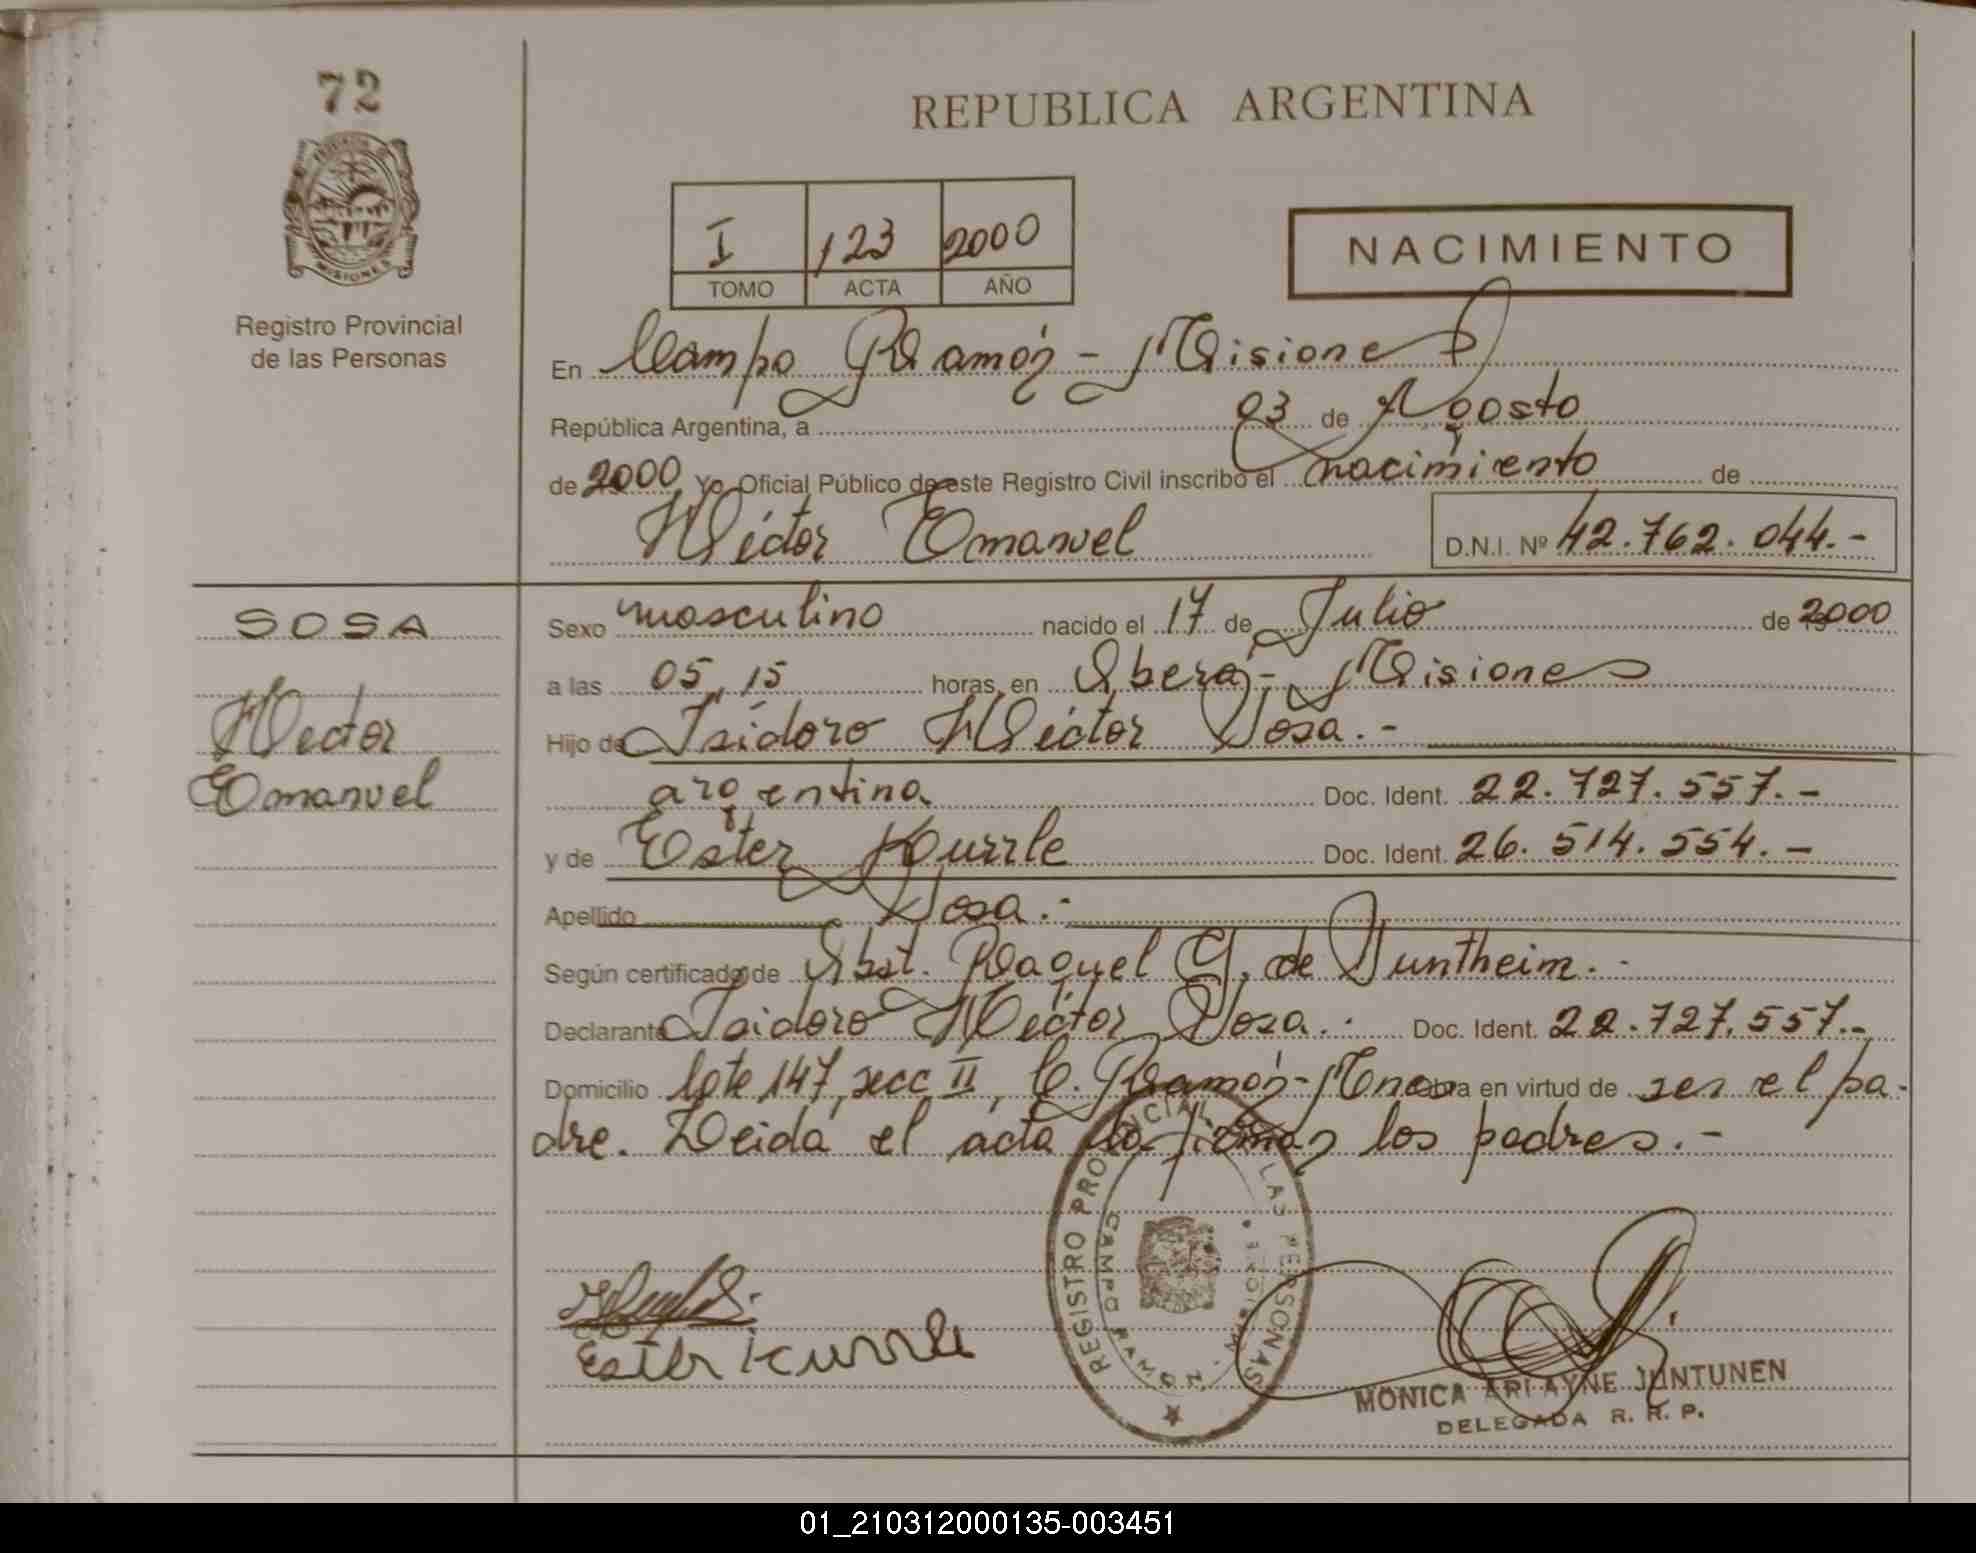 72
REPUBLICA ARGENTINA
MISIONES
Registro Provincial
de las Personas
I 123 2000
TOMO ACTA AÑO
NACIMIENTO
En Campo Ramón - Misiones
República Argentina, a 03 de Agosto
de 2000 Yo, Oficial Público de este Registro Civil inscribo el nacimiento de
Héctor Emanuel D.N.I. Nº 42.762.044.-
SOSA
Hector
Emanuel
Sexo masculino nacido el 17 de Julio de 2000
a las 05,15 horas, en Oberá - Misiones
Hijo de Isidoro Héctor Sosa.-
argentina Doc. Ident. 22.727.557.-
y de Ester Kurrle Doc. Ident. 26.514.554.-
Apellido Sosa.-
Según certificado de Obst. Raquel G. de Suntheim.-
Declarante Isidoro Héctor Sosa.- Doc. Ident. 22.727.557.-
Domicilio lote 147, secc II, C. Ramón - Mnes obra en virtud de ser el pa-
dre. Leida el acta la firman los padres.-
Ester Kurrle
REGISTRO PROVINCIAL DE LAS PERSONAS
CAMPO RAMON - MISIONES
MONICA ARI AYNE JUNTUNEN
DELEGADA R. R. P.
01_210312000135-003451